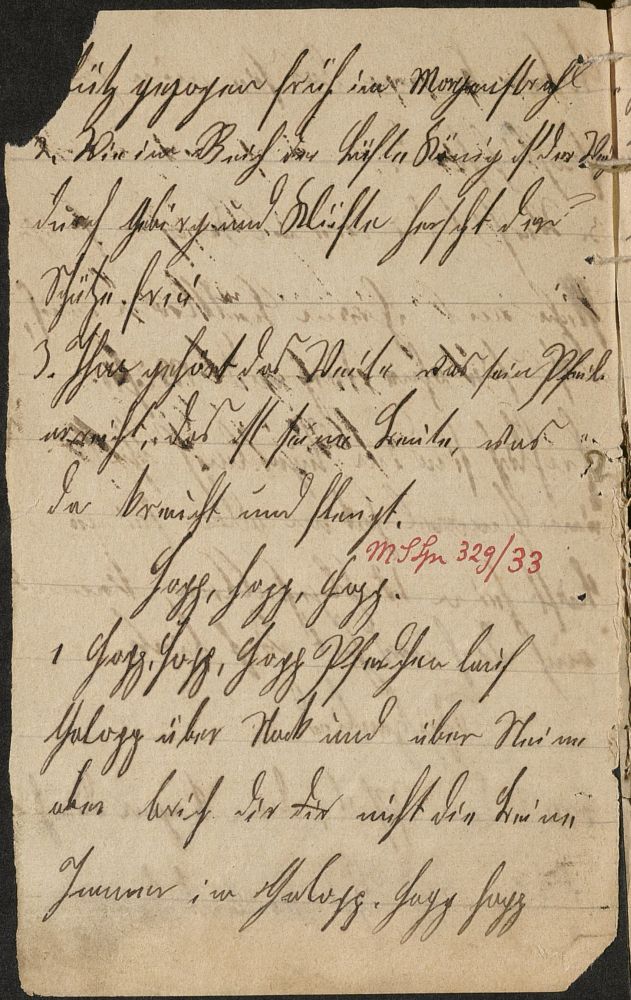 ütz gezogen früh im Morgenstrahl
2. Wie im Reich der Lüfte König ist der Weih
durch Gebirg und Klüfte herscht der
Schütze frei
3. Ihm gehört das Weite was sein Pfeil
erreicht, das ist seine Beute, was
da kreucht und fleugt.
MS Hn 329/33
Hopp, hopp, hopp.
1 Hopp, hopp, hopp Pferdchen lauf
Galopp über Stock und über Steine
aber brich dir die nicht die Beine
Immer im Galopp. hopp hopp